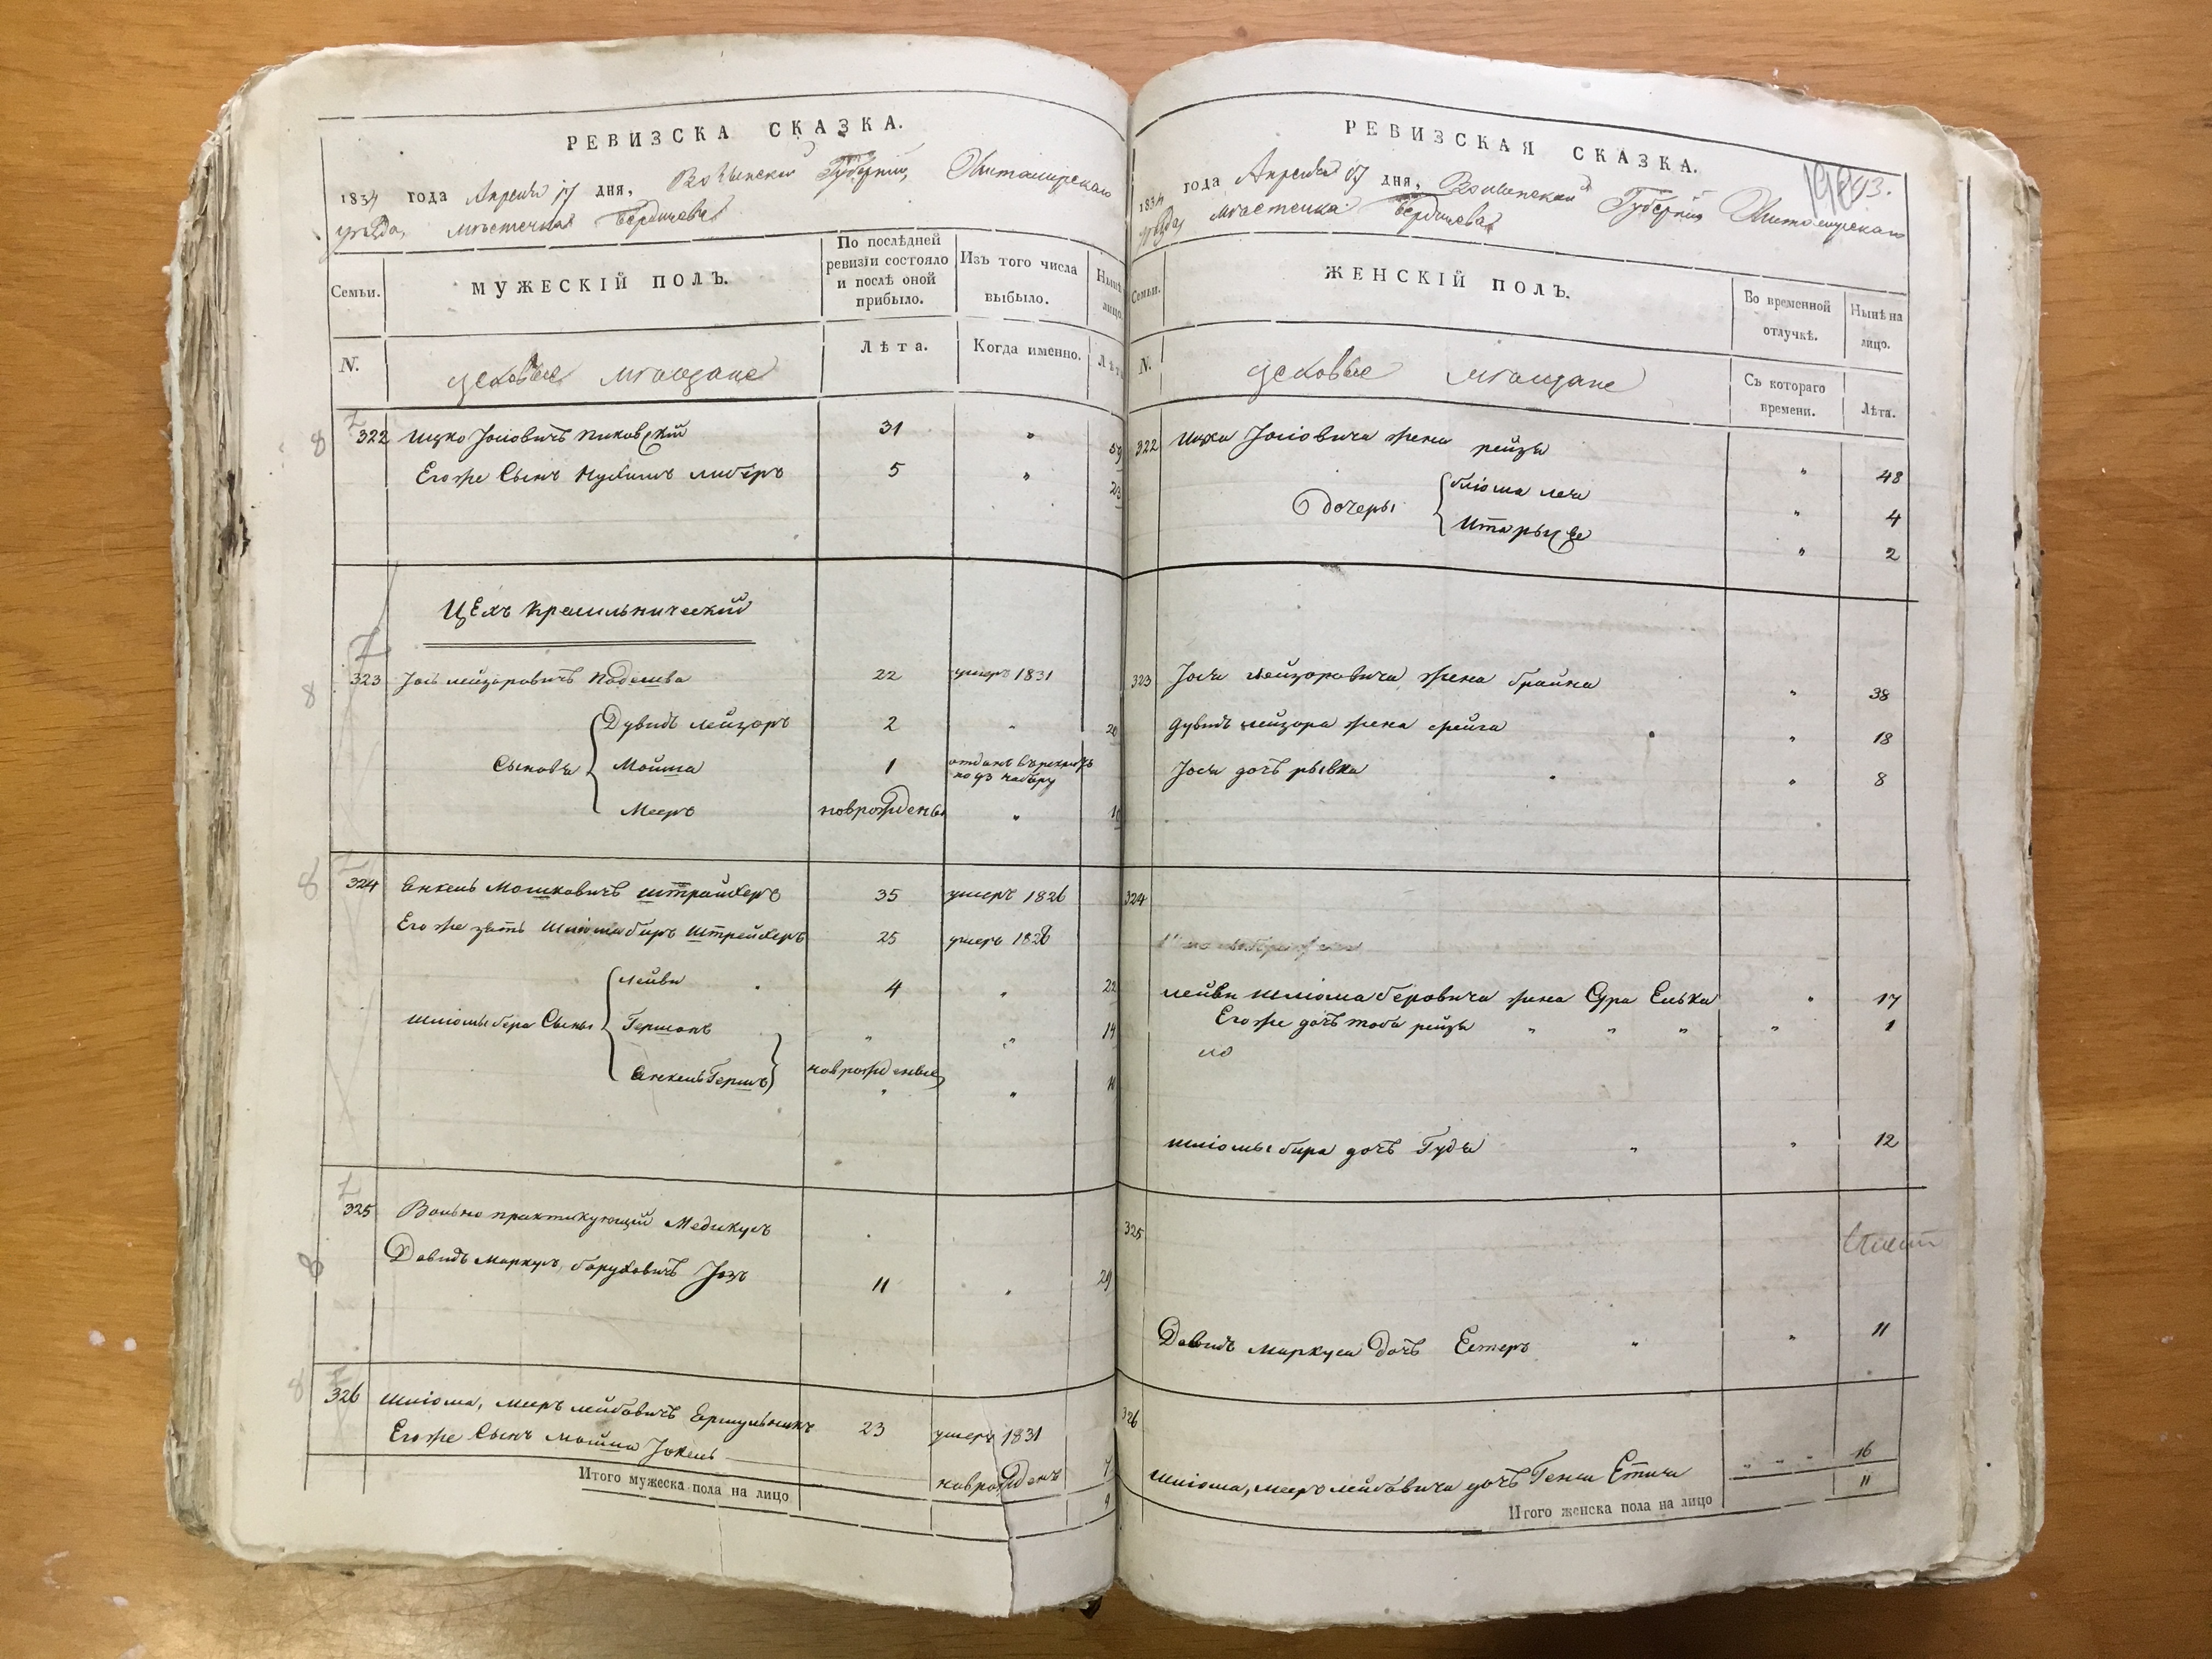 РЕВИЗСКА СКАЗКА.
1834 года Апреля 17 дня, Волынской Губернии, Житомирского
уезда, местечка Бердичева
Семьи.
МУЖЕСКІЙ ПОЛЪ.
По послѣдней ревизіи состояло и послѣ оной прибыло.
Изъ того числа выбыло.
N.
Лѣта.
Когда именно.
цеховые мещане
322 Ицко Іосіовичъ Пиковскій 31 „ 59
Его же Сынъ Нухимъ либеръ 5 „ 23
Цехъ Красильнический
323 Іось лейзоровичъ 22 умеръ 1831
Сыновья
Дувидъ лейзоръ 2 „ 20
Мошка 1 отданъ в рекруты по 93 набору
Мееръ новорожденъ „
324 Енкель Мошковичъ Штрайхеръ 35 умеръ 1826
Его же зять Шліома беръ Штрейхеръ 25 умеръ 1828
Шліомы бера Сыны
лейви 4 „ 22
Гершонъ „ „ 14
Енкель Гершъ новорожденые „
325 Вольно практикующий Медикусъ
Давидъ Маркусъ, боруховичъ 11 „ 29
326 Шліома, мееръ лейбовичъ 23 умеръ 1831
Его же Сынъ мошка Іокель новорожденъ 7
Итого мужеска пола на лицо 9
РЕВИЗСКАЯ СКАЗКА.
1834 года Апреля 17 дня, Волынской Губернии Житомирского
уезда местечка Бердичева
Семьи.
ЖЕНСКІЙ ПОЛЪ.
Во временной отлучкѣ.
Нынѣ на лицо.
N.
Съ котораго времени.
Лѣта.
цеховые мещане
322 Ицка Іосіовича жена рейзя „ 48
Дочеры
бліома леи „ 4
„ 2
323 Іося лейзоровича жена брайна „ 38
Дувидъ лейзора жена фейга „ 18
Іося дочь рывка „ 8
324
лейви шліома беровича жена Сура Елька „ 17
Его же дочь тоба рейзя „ „ „ „ 1
Шліомы бера дочь Гудя „ „ 12
325
Давидъ Маркуса Дочь Естеръ „ „ 11
326
Шліома, мееръ лейбовича дочь Геня Етия „ „ „ 16
Итого женска пола на лицо 11